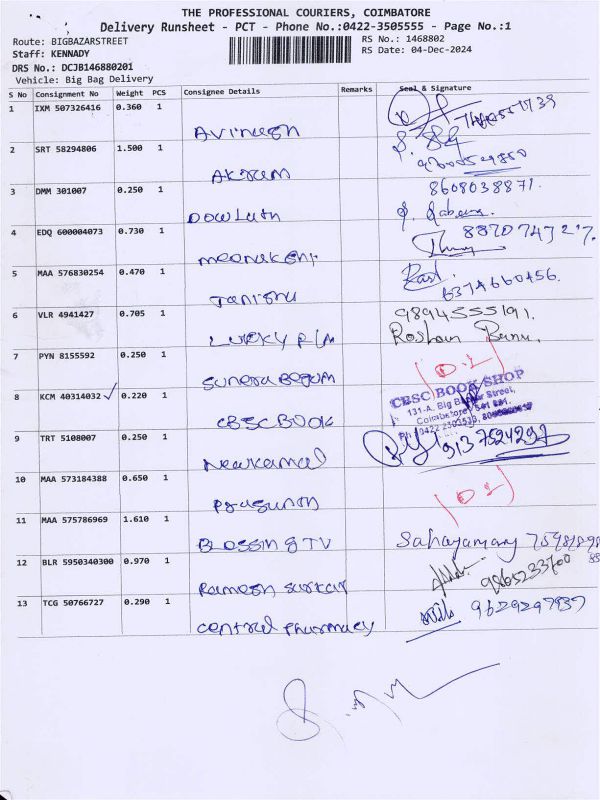 THE PROFESSIONAL COURIERS, COIMBATORE
Delivery Runsheet - PCT - Phone No.:0422-3505555 - Page No.:1
Route: BIGBAZARSTREET
RS No.: 1468802
Staff: KENNADY
RS Date: 04-Dec-2024
DRS No.: DCJB146880201
Vehicle: Big Bag Delivery
S No Consignment No Weight PCS Consignee Details Remarks Seal & Signature
1 IXM 507326416 0.360 1
Avinesh
2 SRT 58294806 1.500 1
Akram
3 DMM 301007 0.250 1 8608038871.
Dowlath
4 EDQ 600004073 0.730 1
Meenakshi
5 MAA 576830254 0.470 1
6374660456.
Tanishu
6 VLR 4941427 0.705 1 9894555191.
Lucky P/M Roshan Banu.
7 PYN 8155592 0.250 1
Sunera Begum
8 KCM 40314032 ✓ 0.220 1 CBSC BOOK SHOP
131-A, Big Bazaar Street,
CBSC BOOK
9 TRT 5108007 0.250 1 9137524297
Neelkamal
10 MAA 573184388 0.650 1
Prasunth
11 MAA 575786969 1.610 1
Blessing TV Sahayamary
12 BLR 5950340300 0.970 1 9865233700
Ramesh Surkar
13 TCG 50766727 0.290 1 9629297937
Central Pharmacy